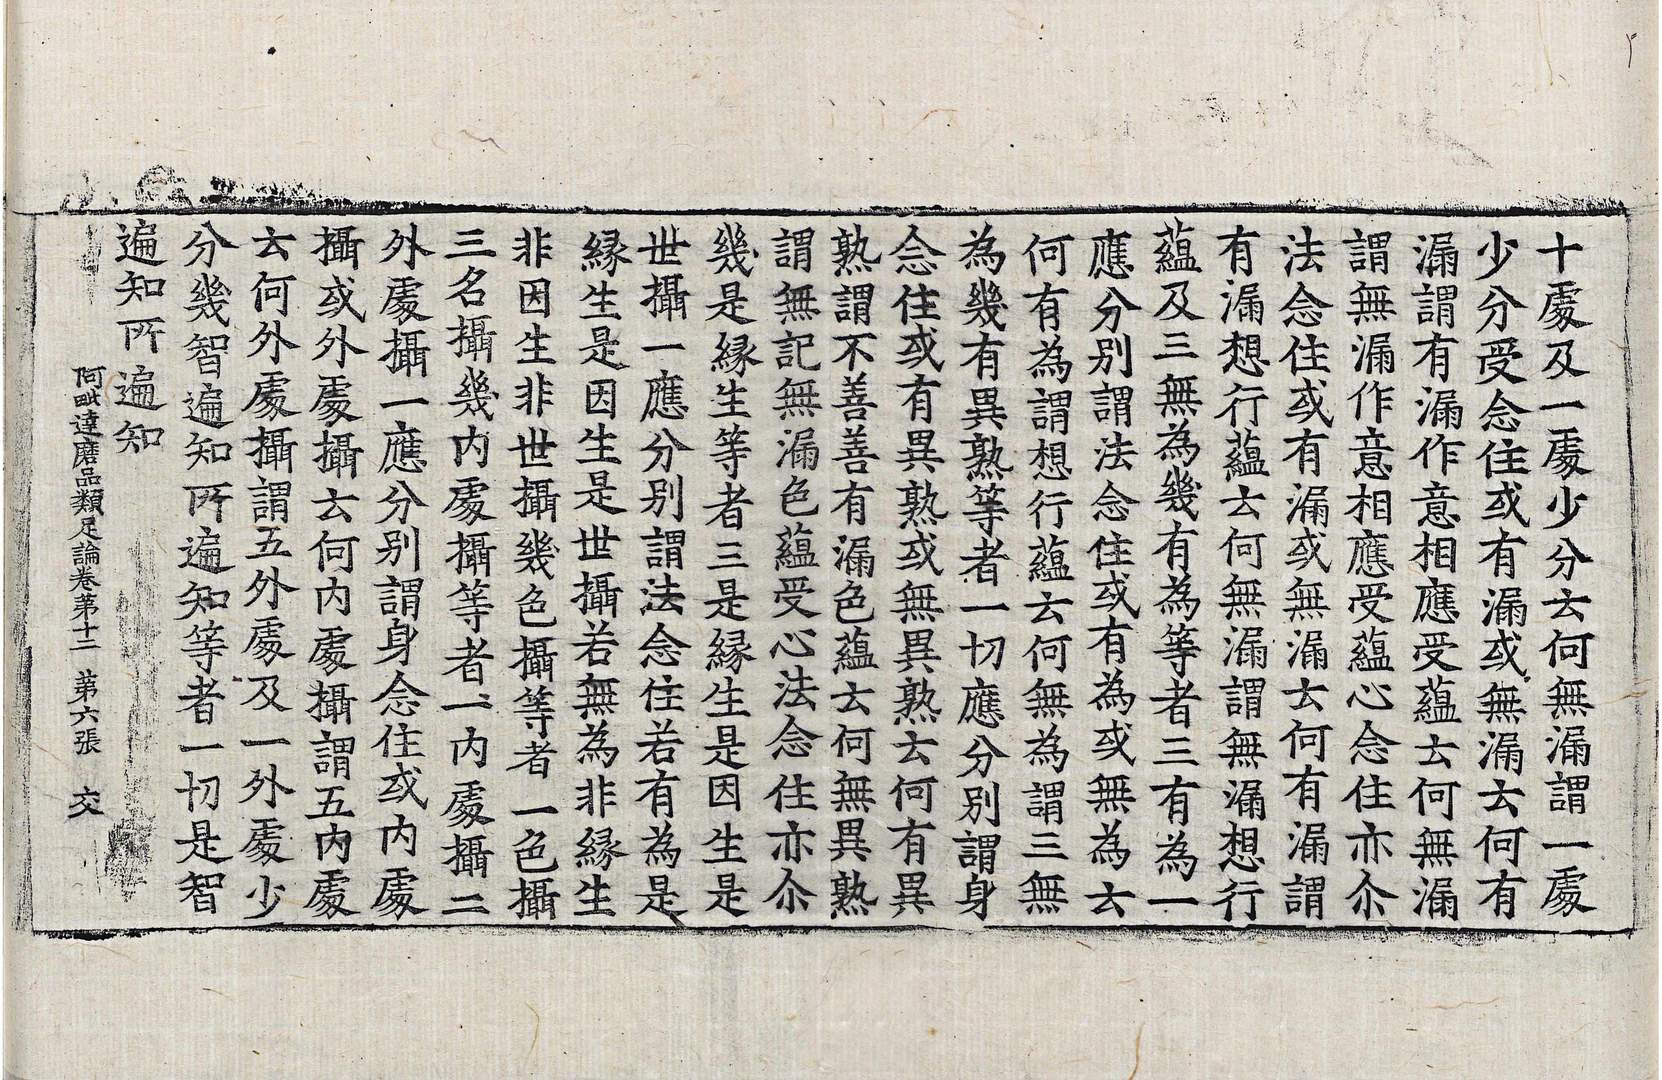 十處及一處少分云何無漏謂一處
少分受念住或有漏或無漏云何有
漏謂有漏作意相應受蘊云何無漏
謂無漏作意相應受蘊心念住亦尒
法念住或有漏或無漏云何有漏謂
有漏想行蘊云何無漏謂無漏想行
蘊及三無為幾有為等者三有為一
應分別謂法念住或有為或無為云
何有為謂想行蘊云何無為謂三無
為幾有異熟等者一切應分別謂身
念住或有異熟或無異熟云何有異
熟謂不善善有漏色蘊云何無異熟
謂無記無漏色蘊受心法念住亦尒
幾是緣生等者三是緣生是因生是
世攝一應分別謂法念住若有為是
緣生是因生是世攝若無為非緣生
非因生非世攝幾色攝等者一色攝
三名攝幾內處攝等者一內處攝二
外處攝一應分別謂身念住或內處
攝或外處攝云何內處攝謂五內處
云何外處攝謂五外處及一外處少
分幾智遍知所遍知等者一切是智
遍知所遍知
阿毗達磨品類足論卷第十二 第六張 交